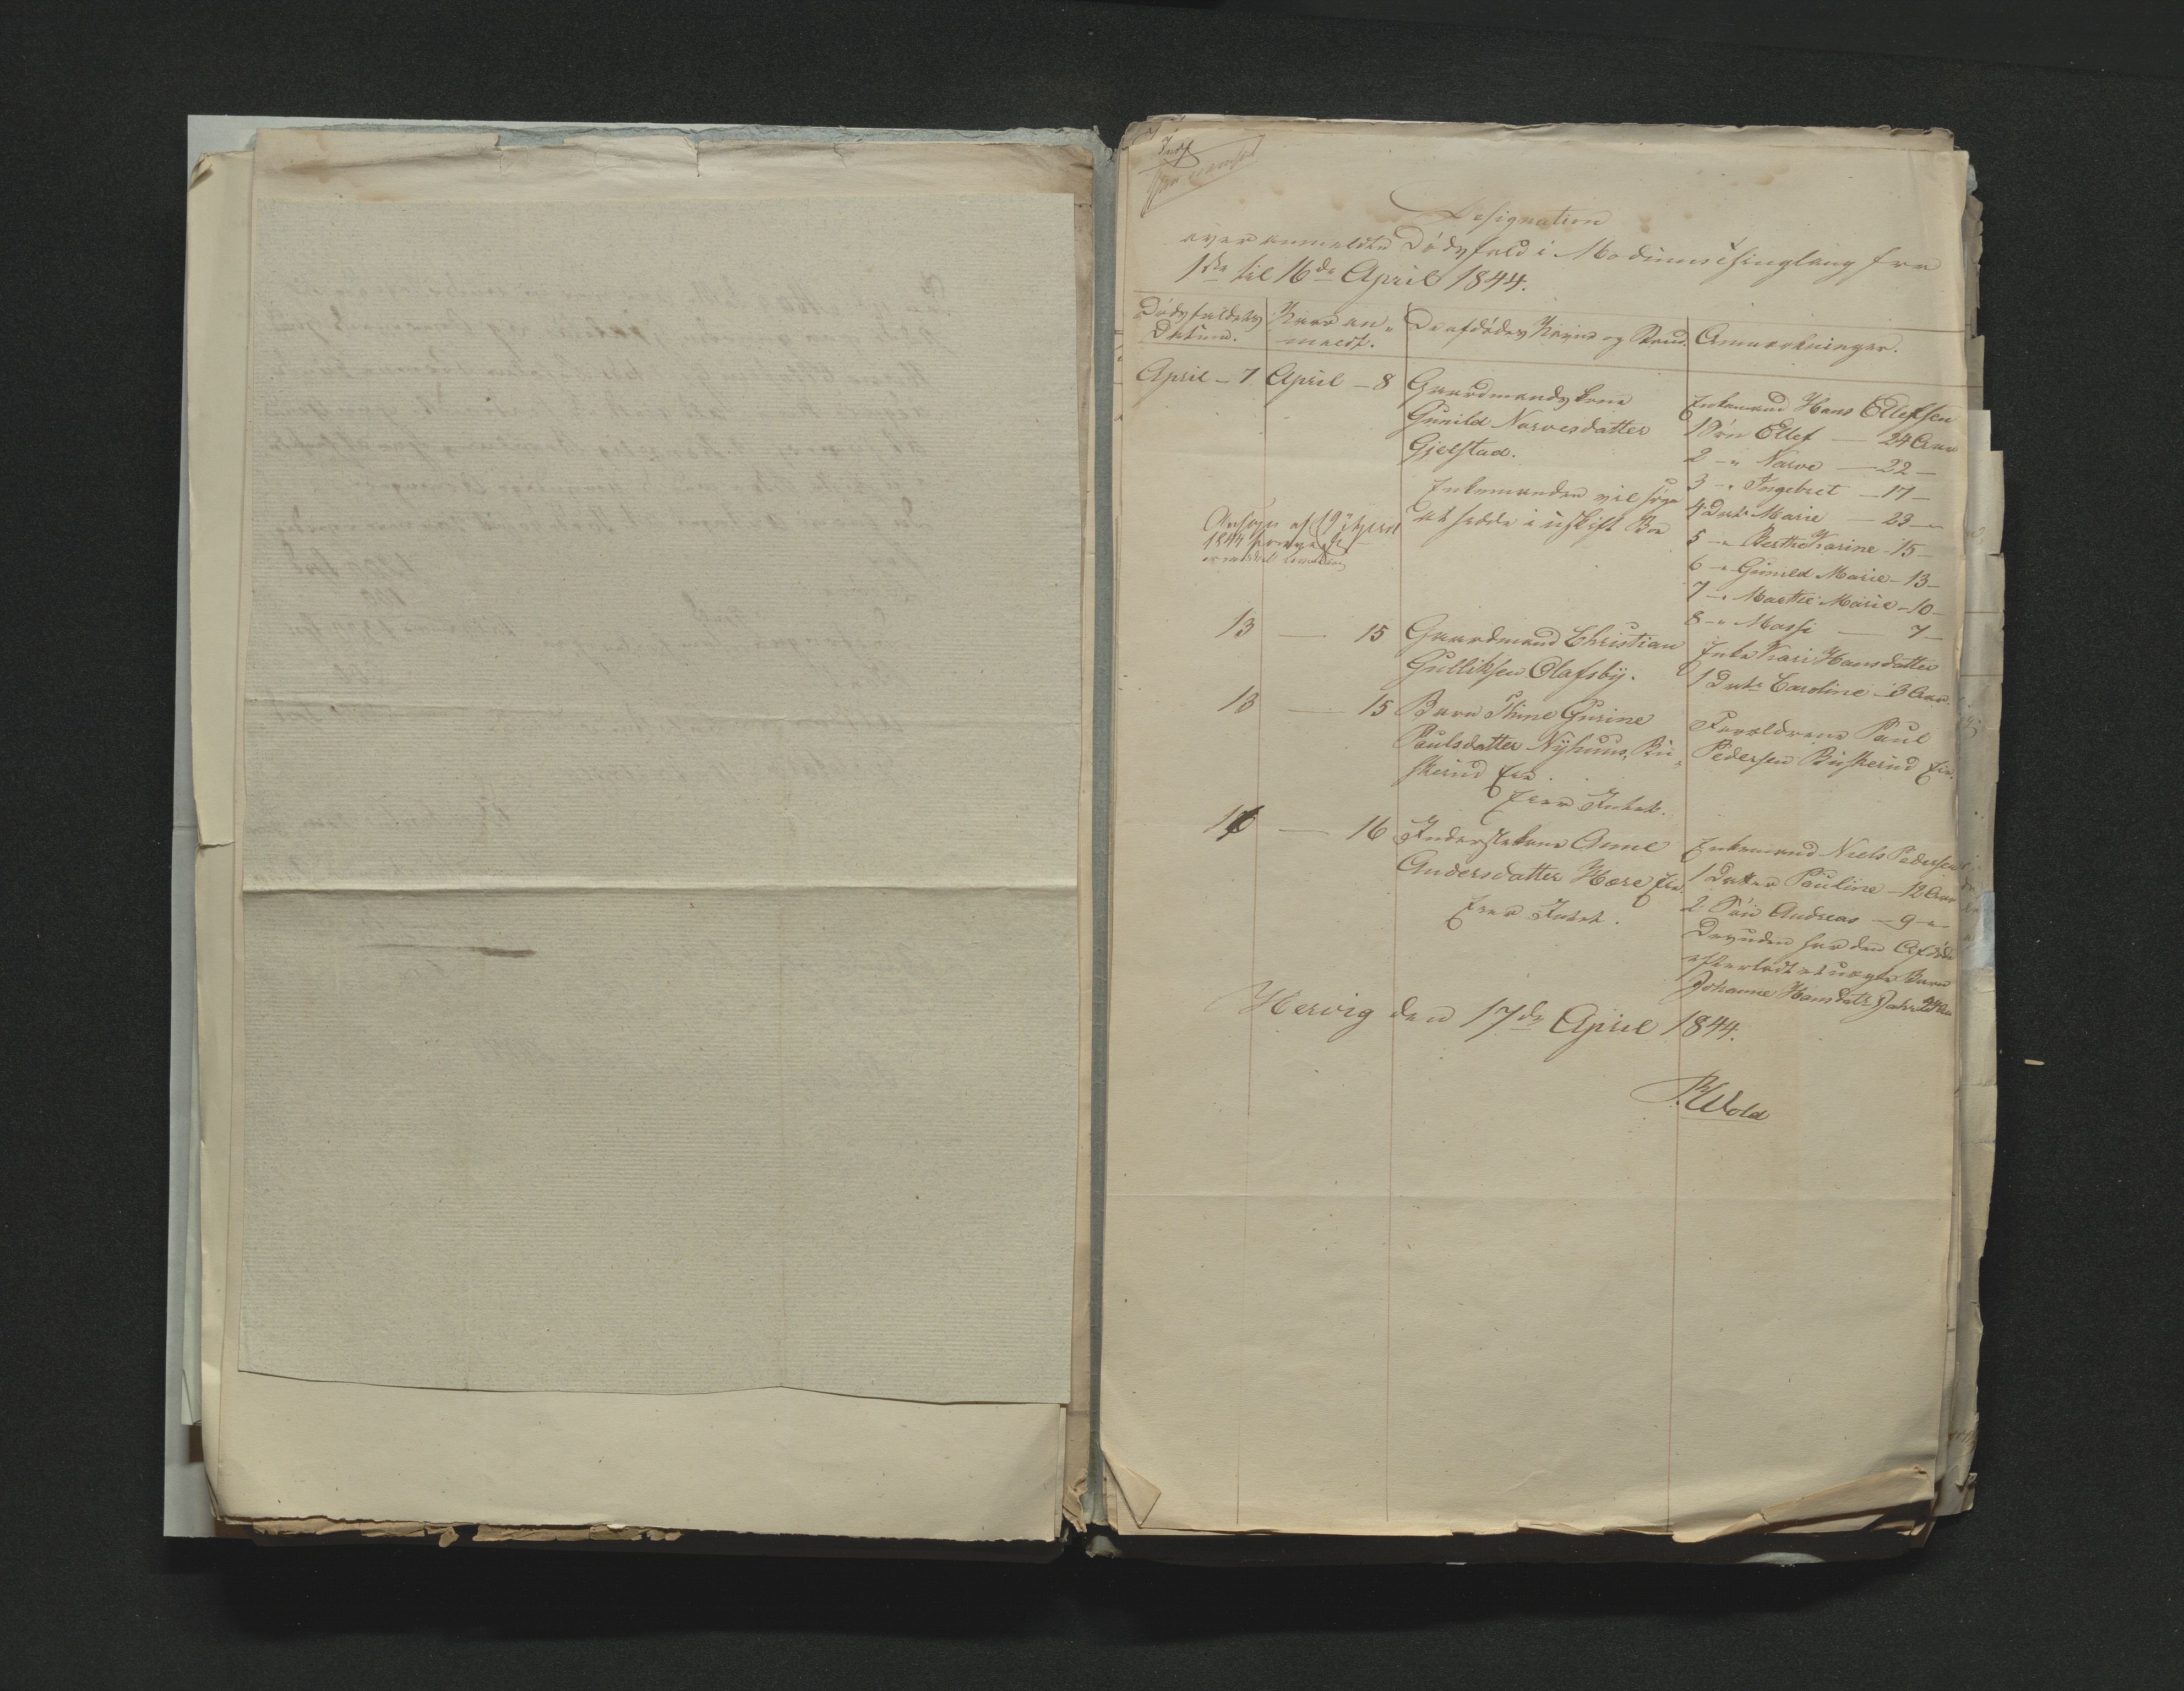 Designation
over anmeldte Dødsfald i Modums Thinglaug fra
1ste til 16de April 1844.
Dødsfaldets Datum. | Naar an- meldt. | De afdødes Navne og Stand. | Anmærkninger.
April - 7 April - 8 Gaardmandskone
Gunild Narvesdatter
Gjelstad.
Enkemanden vil søge
at sidde i uskift Boe
1844
Enkemand Hans Ellefsen
1 Søn Ellef — 24 Aar
2 - " Narve — 22 —
3 - " Ingebret — 17 —
4 Datr Marie — 23 —
5 - " Berthe Karine - 15 —
6 - " Gunild Marie - 13 —
7 - " Marthe Marie - 10 —
8 - " Massi — 7 —
13 — 15 Gaardmand Christian
Gulliksen Olafsby.
Enke Kari Hansdatter
1 Datr Caroline - 3 Aar.
13 — 15 Barn Thine Gurine
Paulsdatter Nyhuus, Bu-
skerud Eie.
Eier Intet.
Forældrene Paul
Pedersen Buskerud Eie.
16 — 16 Inderstekone Anne
Andersdatter Hære Eie.
Eier Intet.
Enkemand Niels Pedersen
1 Datter Pauline - 12 Aar
2 Søn Andreas — 9 —
Desuden har den Afdøde
efterladt et uægte Barn
Johanne Hansdatr
Hervig den 17de April 1844.
Wold